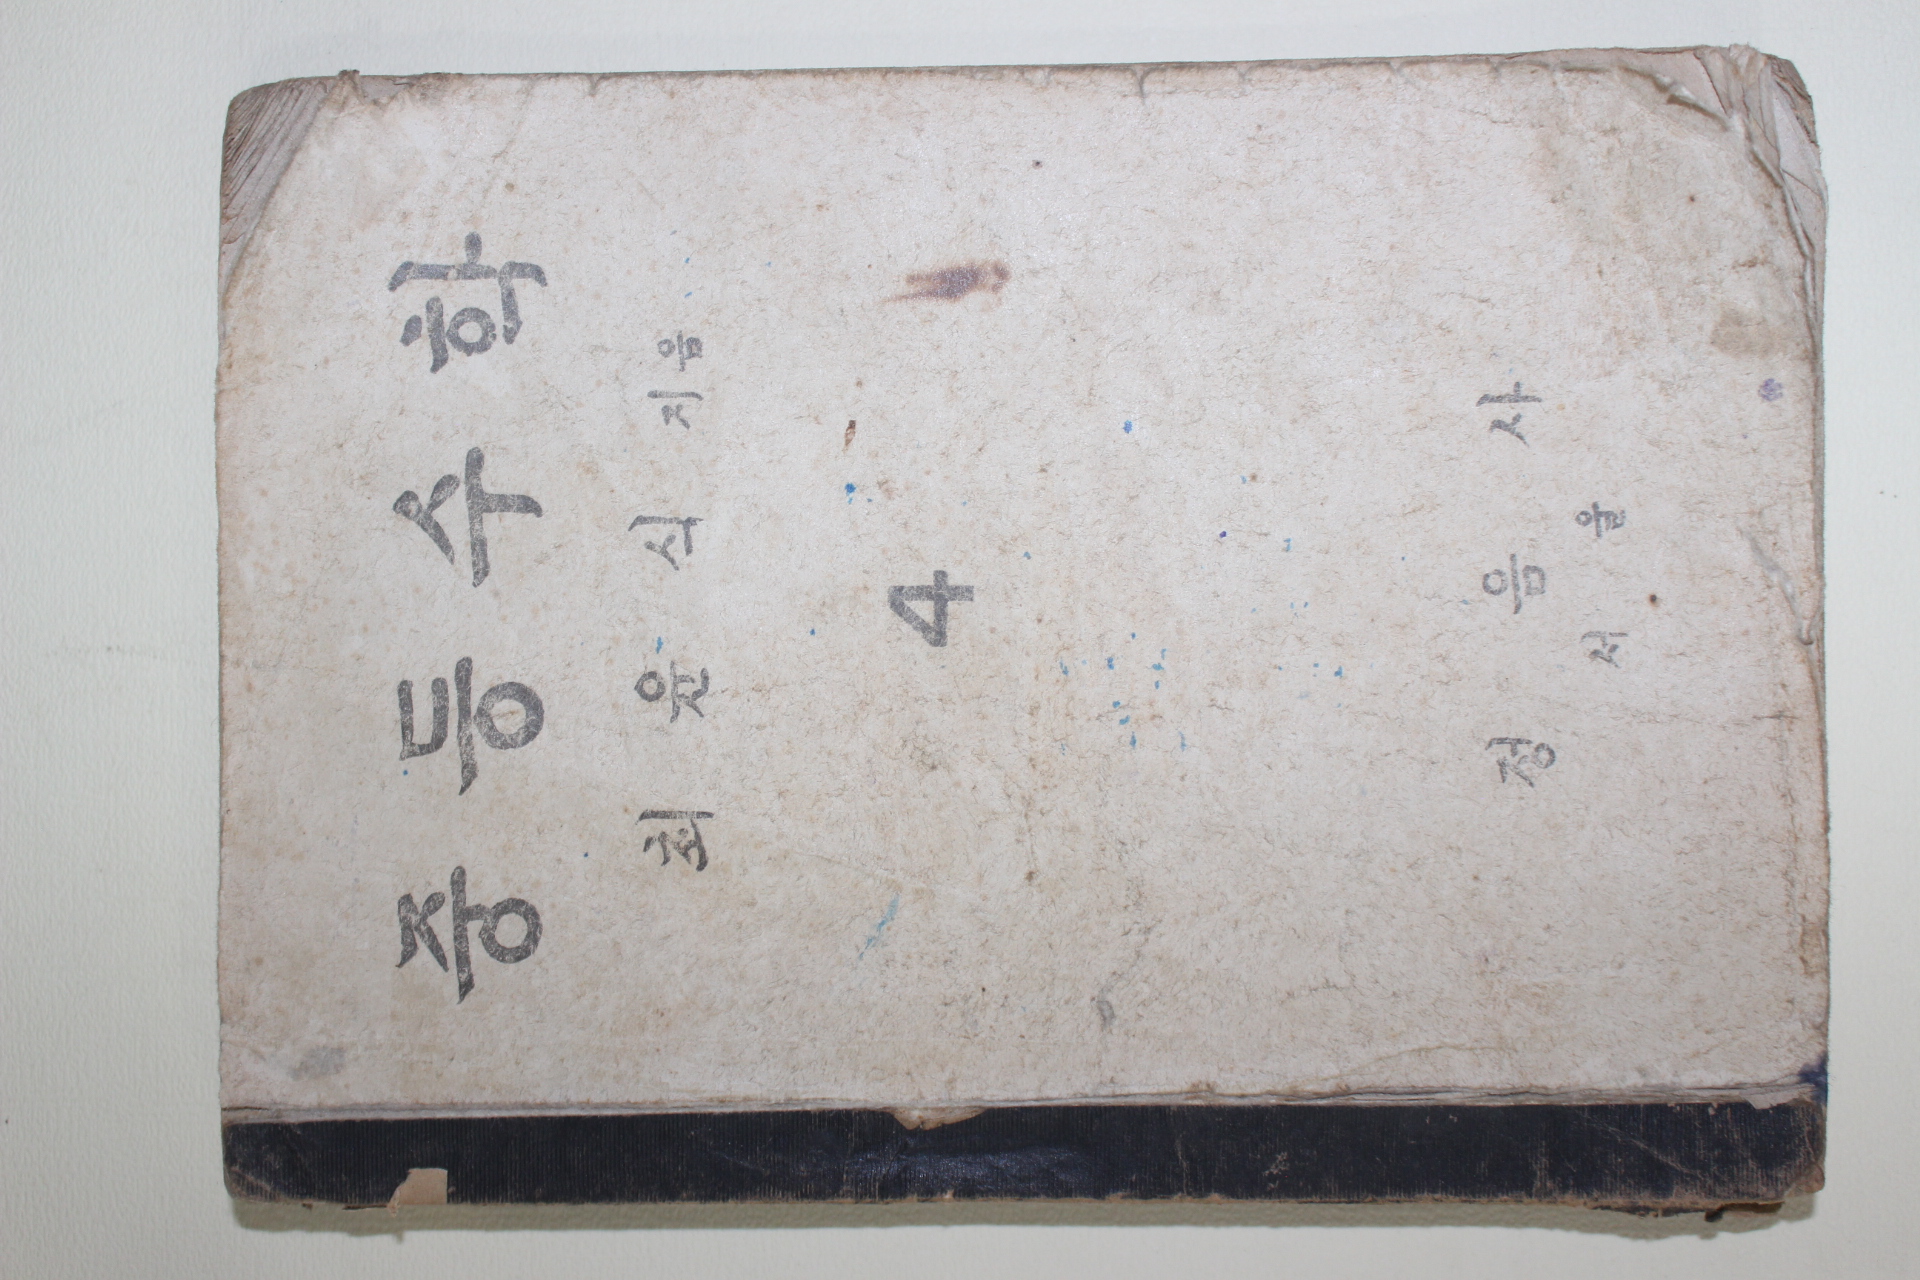 중등수학
최윤식 지음
4
정음사
서울